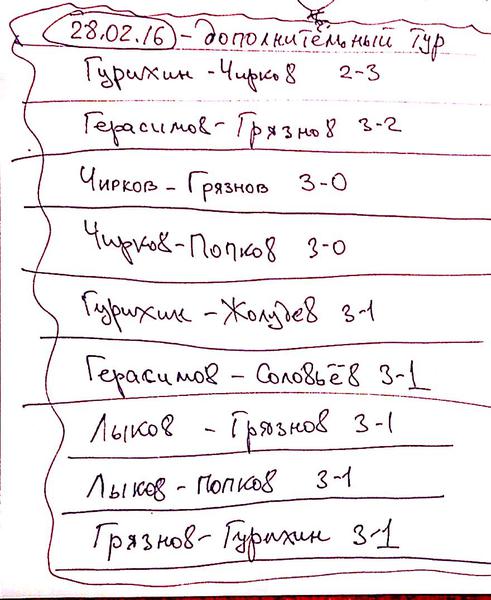 28.02.16 - дополнительный тур
Гурихин - Чирков 2-3
Герасимов - Грязнов 3-2
Чирков - Грязнов 3-0
Чирков - Попков 3-0
Гурихин - Жолудев 3-1
Герасимов - Соловьёв 3-1
Лыков - Грязнов 3-1
Лыков - Попков 3-1
Грязнов - Гурихин 3-1